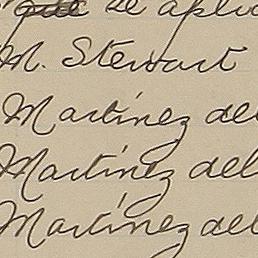 se aplic
M. Stewart
Martínez del
Martínez del
Martínez del